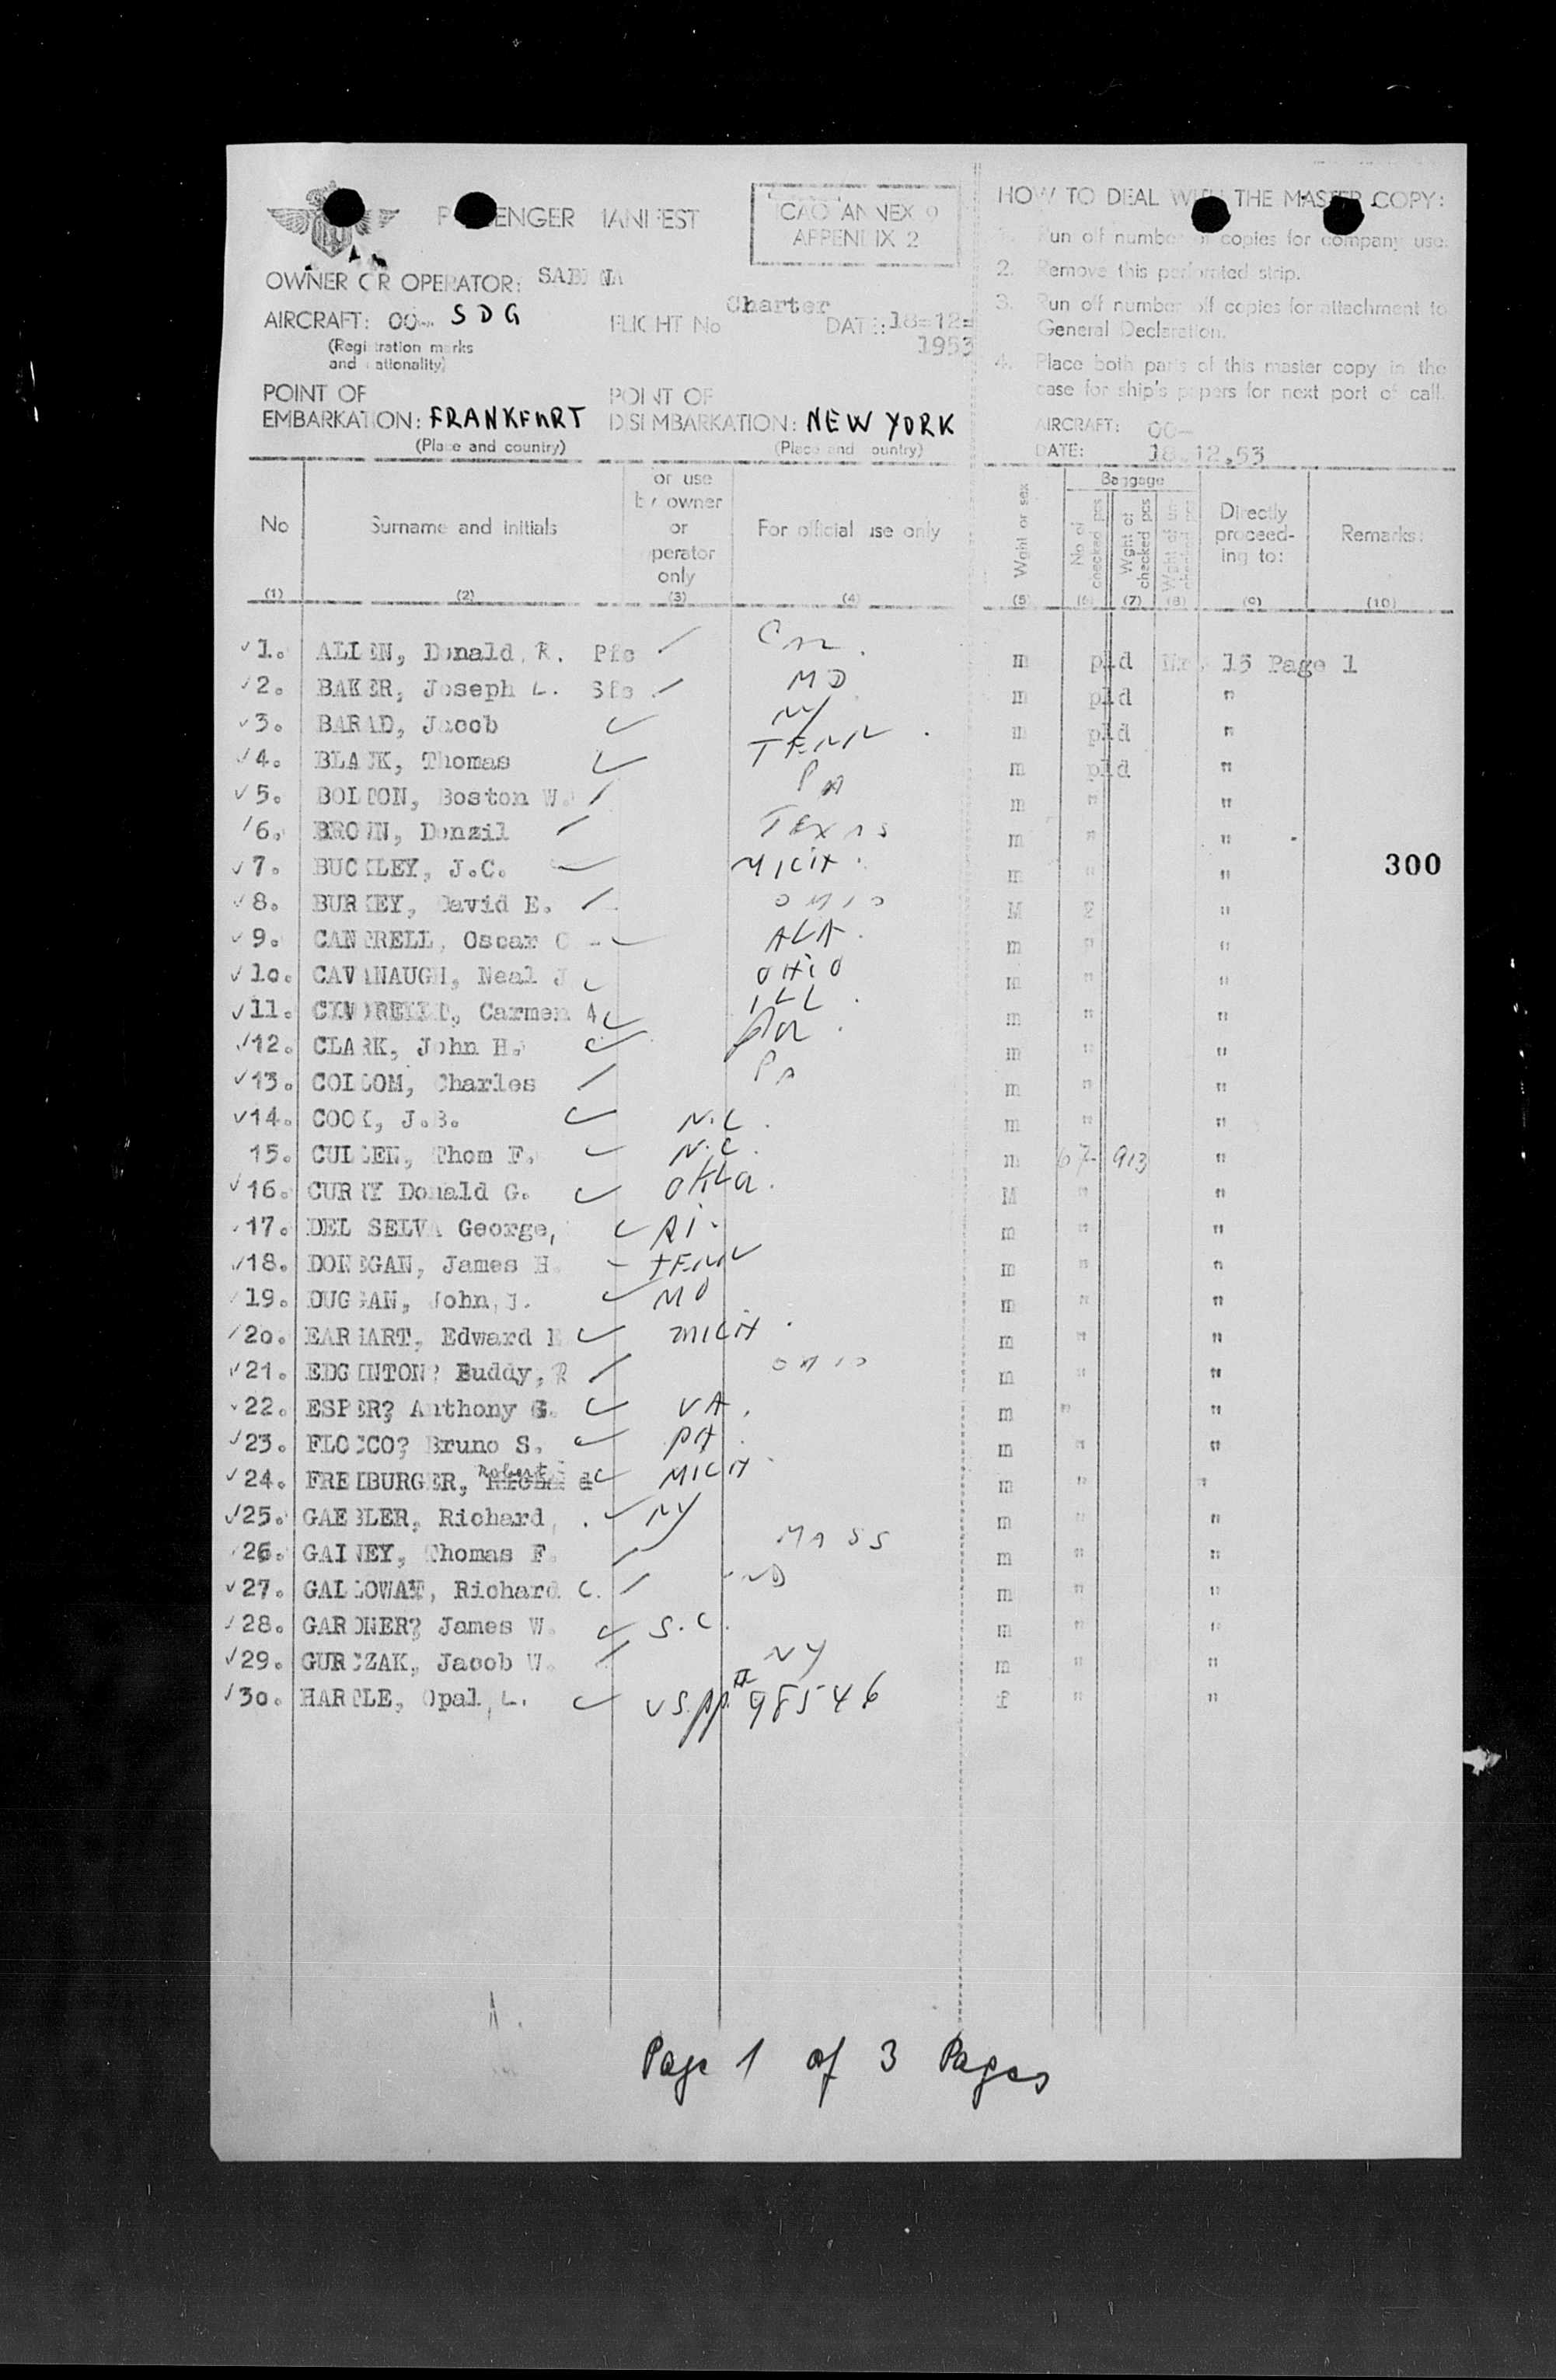 PASSENGER MANIFEST
ICAO ANNEX 9
APPENDIX 2
OWNER OR OPERATOR: SABENA
AIRCRAFT: OO- SDG
FLIGHT No Charter
DATE: 18-12-
1953
(Registration marks
and nationality)
POINT OF
EMBARKATION: FRANKFURT
(Place and country)
POINT OF
DISEMBARKATION: NEW YORK
(Place and country)
HOW TO DEAL WITH THE MASTER COPY:
1. Run off number of copies for company use.
2. Remove this perforated strip.
3. Run off number off copies for attachment to
General Declaration.
4. Place both parts of this master copy in the
case for ship's papers for next port of call.
AIRCRAFT: OO-
DATE: 18.12.53
No
(1)
Surname and initials
(2)
For use
by owner
or
operator
only
(3)
For official use only
(4)
Wght or sex
(5)
Baggage
No of checked pcs
(6)
Wght of checked pcs
(7)
(8)
Directly
proceed-
ing to:
(9)
Remarks:
(10)
1. ALLEN, Donald R. Pfc m pld 15 Page 1
2. BAKER, Joseph L. Sfc MD m pld "
3. BARAD, Jacob NY m pld "
4. BLACK, Thomas TENN m pld "
5. BOLTON, Boston W. PA m " "
6. BROWN, Denzil Texas m " "
7. BUCKLEY, J.C. MICH. m " "
300
8. BURKEY, David E. OHIO M "
9. CANTRELL, Oscar C ALA. m " "
10. CAVANAUGH, Neal J OHIO m " "
11. Carmen A ILL. m " "
12. CLARK, John H. Pa. m " "
13. COLLOM, Charles Pa m " "
14. COOK, J.B. N.C. m " "
15. CULLEN, Thom F. N.C. m 67 913 "
16. CURRY Donald G. OKLa. M " "
17. DEL SELVA George, RI. m " "
18. DONEGAN, James H. TENN m " "
19. DUGGAN, John, J. MO m " "
20. EARHART, Edward E MICH. m " "
21. EDGINTON? Buddy, R OHIO m " "
22. ESPER? Anthony G. VA. m " "
23. FLOCCO? Bruno S. PA. m " "
24. FREIBURGER, Robert MICH m " "
25. GAEBLER, Richard, NY m " "
26. GAINEY, Thomas F. MASS m " "
27. GALLOWAY, Richard C. m " "
28. GARDNER? James W. S.C. m " "
29. GURCZAK, Jacob W. NY m " "
30. HARTLE, Opal L. US.pp. # 98546 f " "
Page 1 of 3 Pages